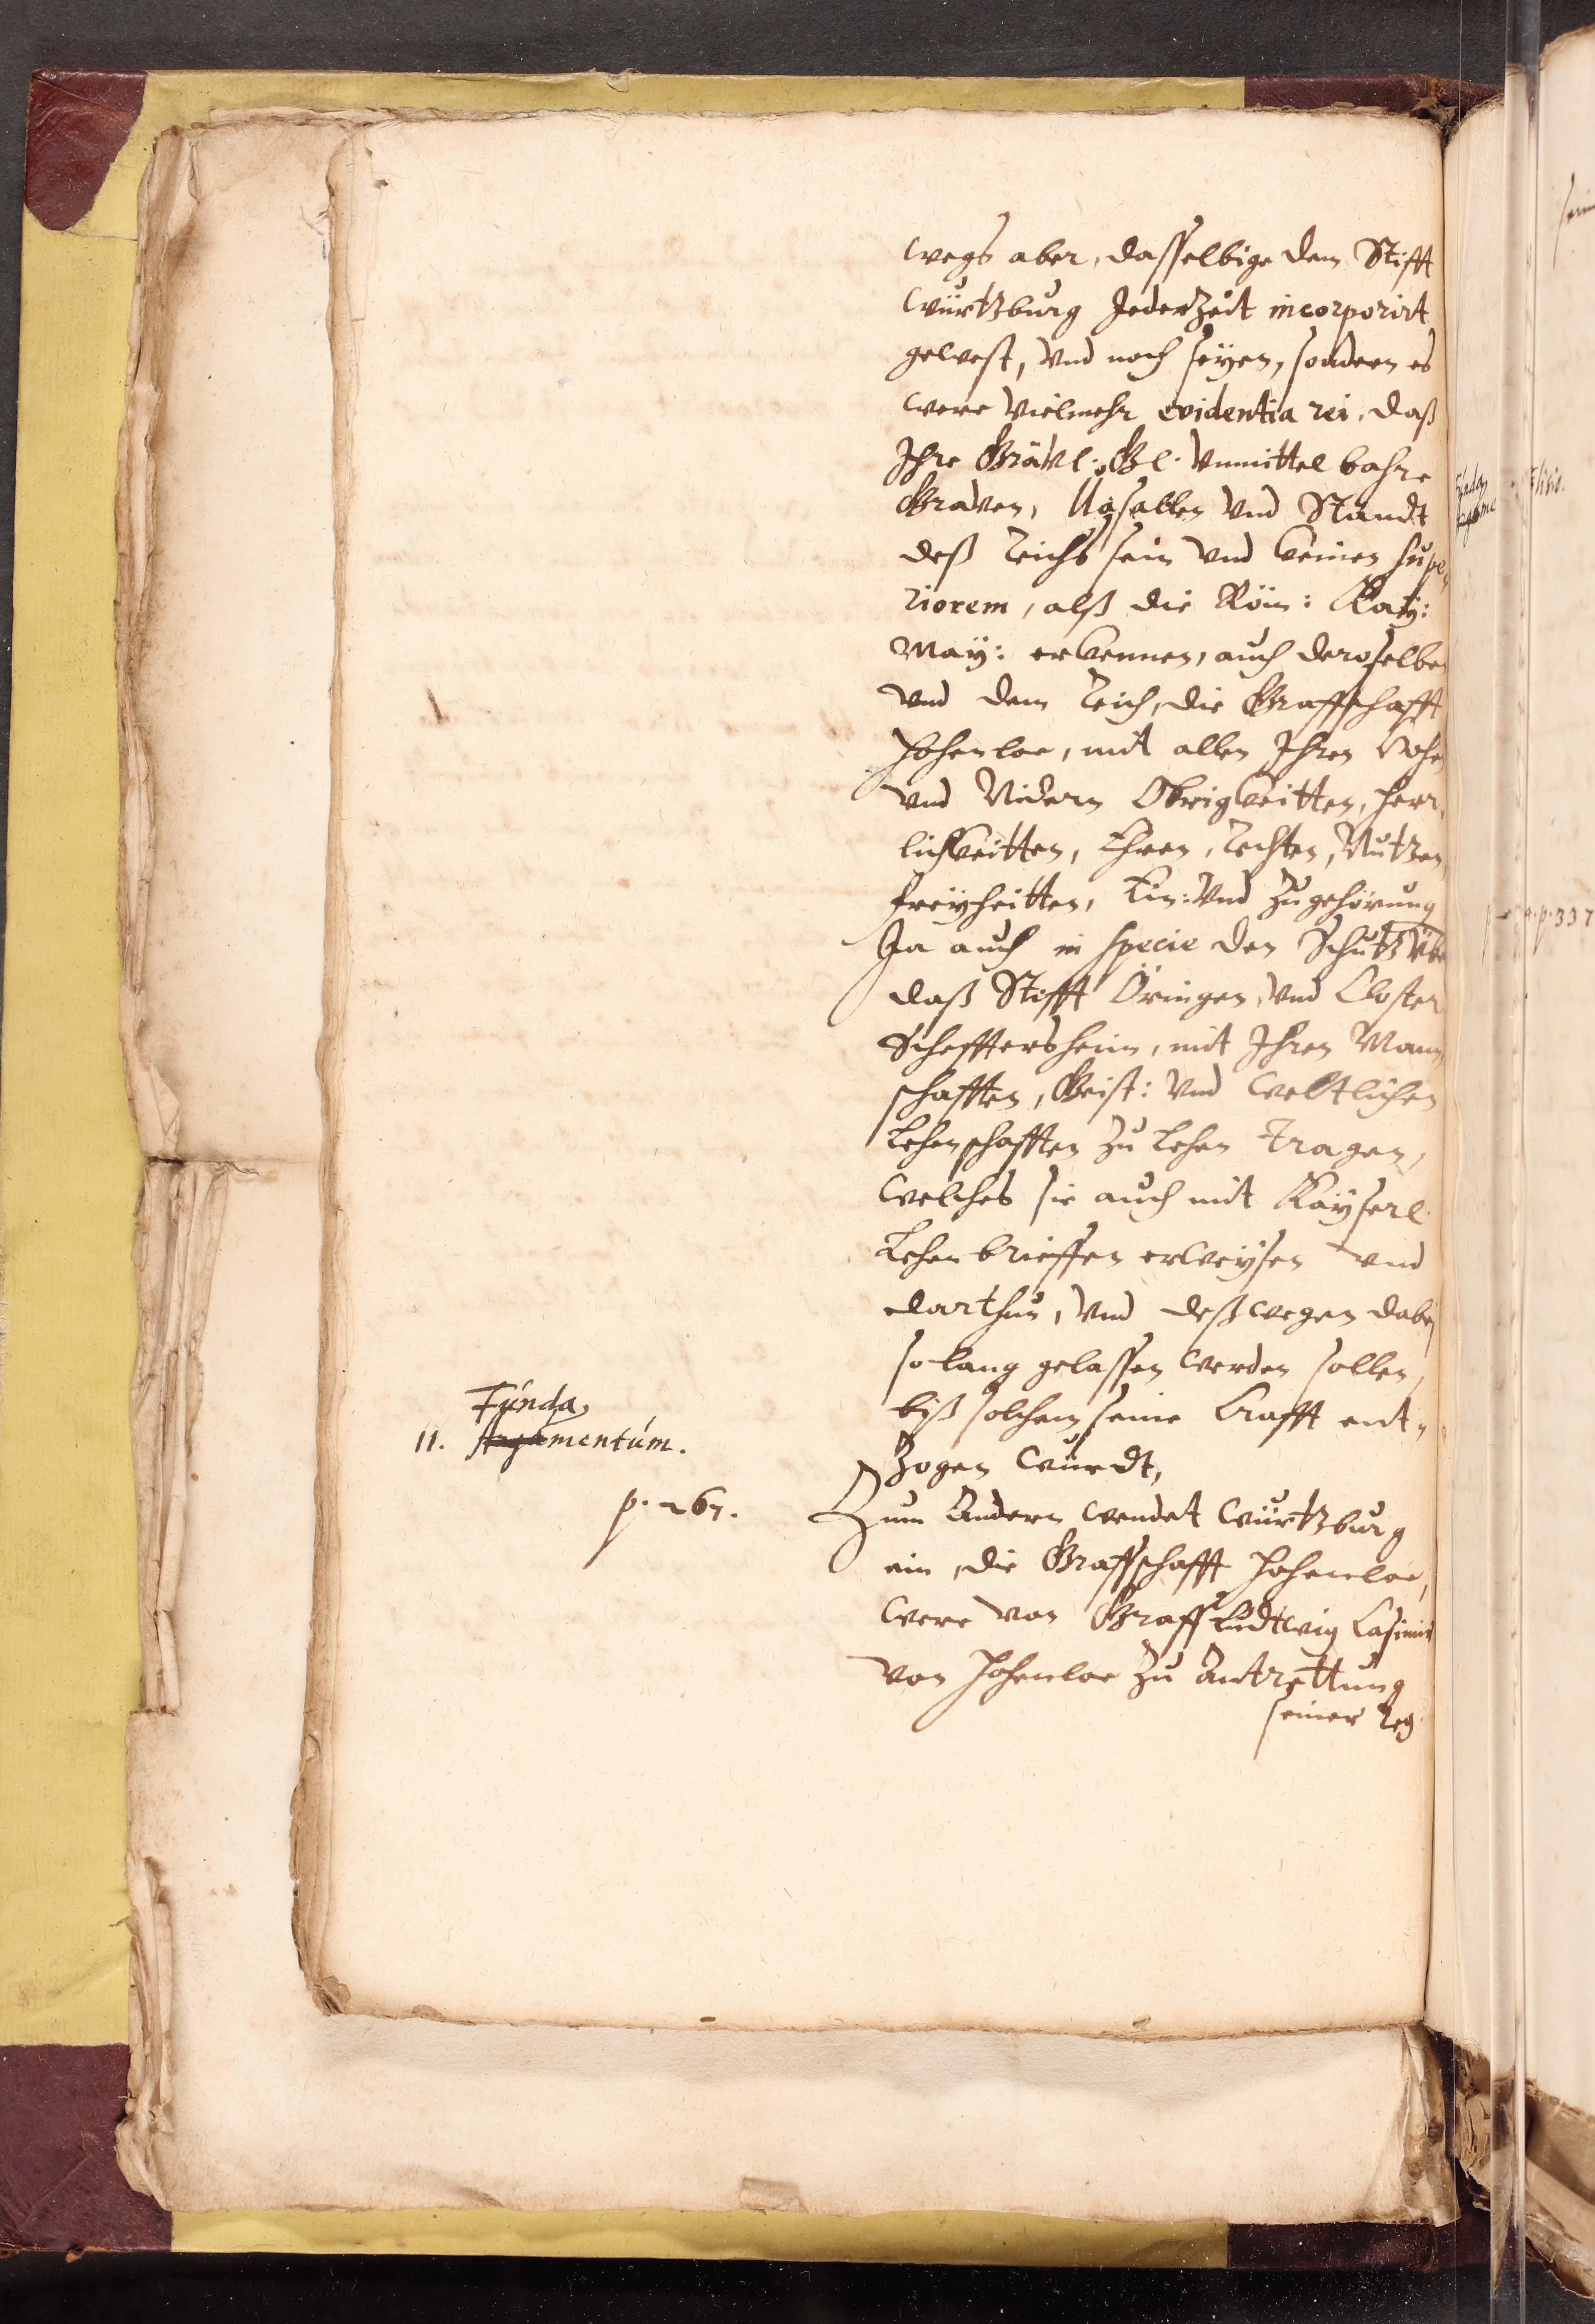 wegs aber, dasselbige dem Stifft
Würtzburg Jederzeit incorporirt
gewest, vnd noch seyen, sondern es
were vielmehr evidentia rei, daß
Ihre Grävl: Gl. vnmittelbahre
Graven, Vasallen vnd Standt
deß Reichs sein vnd keinen supe„
riorem, alß die Röm: Kaÿ:
Maÿ: erkennen, auch deroselben
vnd dem Reich, die Graffschafft
Hohenloe, mit allen Ihren Hohe
vnd Nidern Obrigkeitten, Herr„
lichkeitten, Ehren, Rechten, Nutzen,
Freyheitten, Ein: vnd Zugehörung
Ja auch in specie den Schutz vber
daß Stifft Öringen, vnd Closter
Schefftersheim, mit Ihren Mann
schafften, Geist: vnd Weltlichen
Lehenschafften zu Lehen tragen,
welches sie auch mit Kayserl.
Lehenbrieffen erweysen vnd
darthun, vnd deßwegen dabey
so lang gelassen werden sollen,
biß solchem seine Krafft ent„
zogen würdt,
Funda„
11. Argumentum.
p. 267.
Zum Andern wendet Würtzburg
ein, die Graffschafft Hohenloe,
were von Graff Ludtwig Casimir
von Hohenloe zu Antrettung
seiner Reg
p. 337